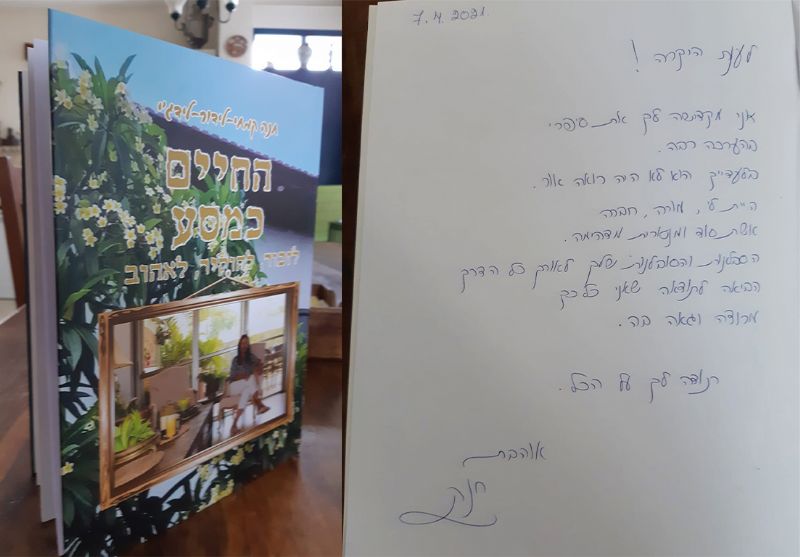 חנה קמחי-לידור-לידג'י
החיים
כמסע
לזכור להוקיר לאהוב
7.4.2021
לענת היקרה!
אני מקדישה לך את סיפרי
בהערכה רבה.
בלעדייך הוא לא היה רואה אור.
היית לי, מורה, חברה
אשת סוד ומנטורית מדהימה.
הסבלנות והסובלנות שלך לאורך כל הדרך
הביאה לתוצאה שאני כל כך
מרוצה וגאה בה.
תודה לך על הכל.
אוהבת
חנה